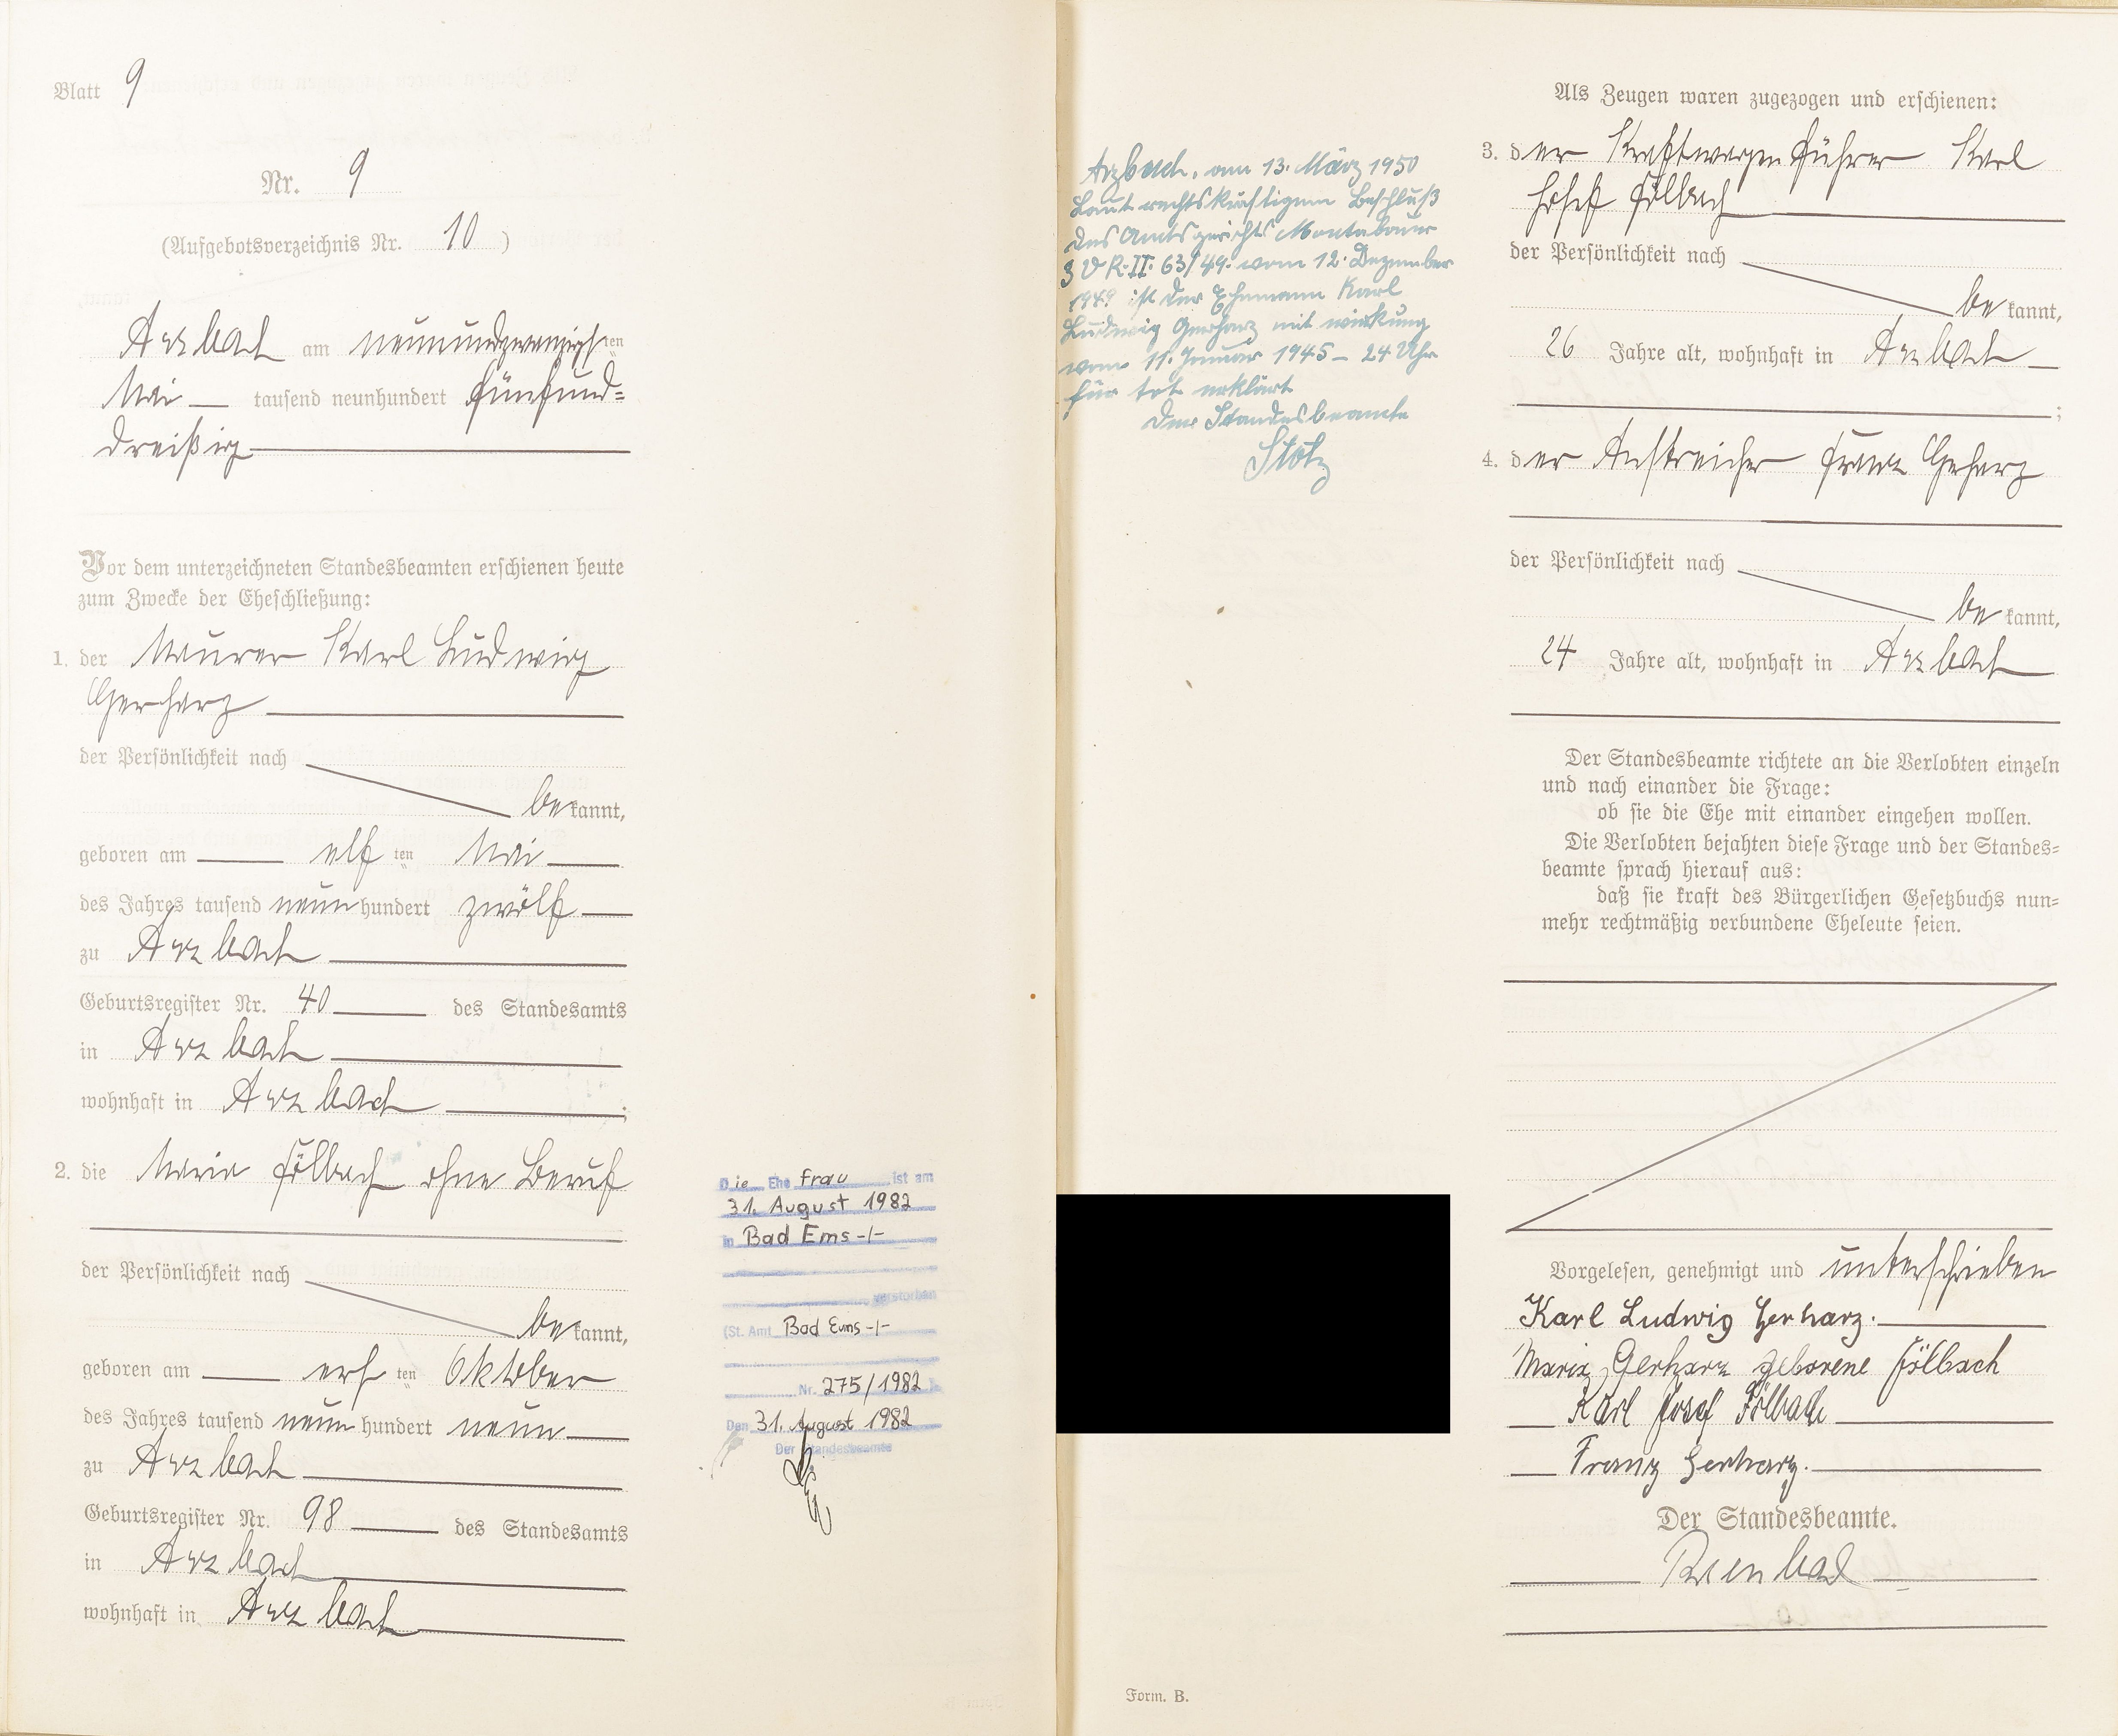 Blatt 9
Nr. 9
(Aufgebotsverzeichnis Nr. 10 )
Arzbach am neunundzwanzigsten
Mai tausend neunhundert fünfund=
dreißig
Vor dem unterzeichneten Standesbeamten erschienen heute
zum Zwecke der Eheschließung:
1. der Maurer Karl Ludwig
Gerharz
der Persönlichkeit nach
bekannt,
geboren am elf ten Mai
des Jahres tausend neunhundert zwölf
zu Arzbach
Geburtsregister Nr. 40 des Standesamts
in Arzbach
wohnhaft in Arzbach ;
2. die Maria Fölbach ohne Beruf
der Persönlichkeit nach
bekannt,
geboren am ersten Oktober
des Jahres tausend neunhundert neun
zu Arzbach
Geburtsregister Nr. 98 des Standesamts
in Arzbach
wohnhaft in Arzbach
Die Ehefrau ist am
31. August 1982
in Bad Ems -/-
verstorben
(St. Amt Bad Ems -/-
Nr. 275/1982
Den 31. August 1982
Der Standesbeamte
Arzbach, am 13. März 1950
Laut rechtskräftigem Beschluß
des Amtsgerichts Montabaur
3 V R. II. 63/49. vom 12. Dezember
1949 ist der Ehemann Karl
Ludwig Gerharz mit Wirkung
vom 11. Januar 1945 – 24 Uhr
für tot erklärt
Der Standesbeamte
Stotz
Als Zeugen waren zugezogen und erschienen:
3. der Kraftwagenführer Karl
Josef Fölbach
der Persönlichkeit nach
bekannt,
26 Jahre alt, wohnhaft in Arzbach
;
4. der Anstreicher Franz Gerharz
der Persönlichkeit nach
bekannt,
24 Jahre alt, wohnhaft in Arzbach
Der Standesbeamte richtete an die Verlobten einzeln
und nach einander die Frage:
ob sie die Ehe mit einander eingehen wollen.
Die Verlobten bejahten diese Frage und der Standes=
beamte sprach hierauf aus:
daß sie kraft des Bürgerlichen Gesetzbuchs nun=
mehr rechtmäßig verbundene Eheleute seien.
Vorgelesen, genehmigt und unterschrieben
Karl Ludwig Gerharz.
Maria Gerharz geborene Fölbach
Karl Josef Fölbach
Franz Gerharz.
Der Standesbeamte.
Form. B.